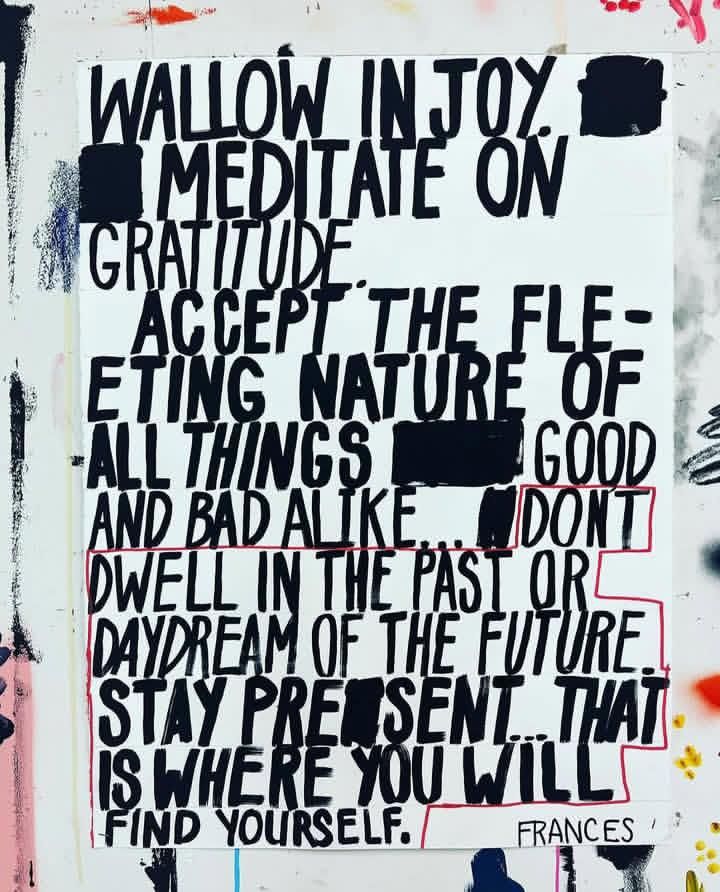 WALLOW IN JOY.
MEDITATE ON
GRATITUDE.
ACCEPT THE FLE-
ETING NATURE OF
ALL THINGS GOOD
AND BAD ALIKE... DONT
DWELL IN THE PAST OR
DAYDREAM OF THE FUTURE.
STAY PRESENT... THAT
IS WHERE YOU WILL
FIND YOURSELF.
FRANCES